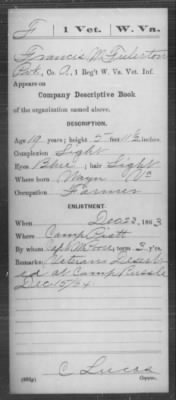 F | 1 Vet. | W. Va.
Francis M. Fulerton
Pvt., Co. A, 1 Reg't W. Va. Vet. Inf.
Appears on
Company Descriptive Book
of the organization named above.
DESCRIPTION.
Age 19 years; height 5 feet inches
Complexion Light
Eyes Blue; hair Light
Where born Wayn Va
Occupation Farmer
ENLISTMENT.
When Dec 23, 1863
Where Camp Piatt
By whom Capt. ; term 3 yrs.
Remarks: Vetrans Desert
ed at Camp Russle
Dec 15/64
C Lucas
Copyist.